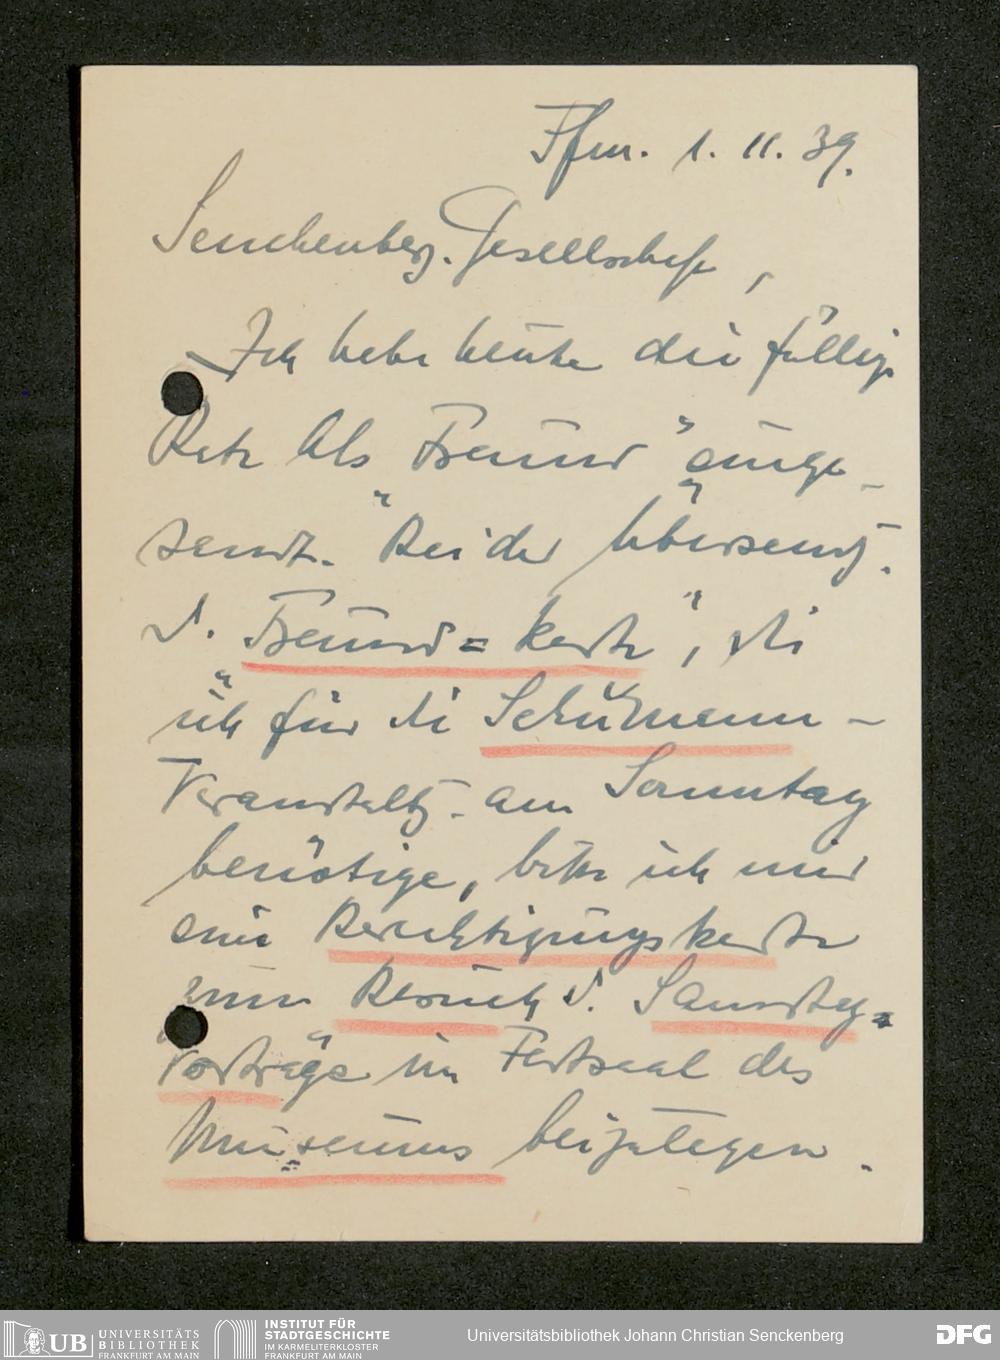 Ffm. 1. 11. 39.
Senckenberg. Gesellschaft,
Ich habe heute die fällige
Rate als "Freund" einge-
sandt. Bei der Übersendg.
d. "Freund=karte", die
ich für die Schumann-
Veranstaltg. am Sonntag
benötige, bitte ich mir
eine Berechtigungskarte
zum Besuch d. Samstag=
Vorträge im Festsaal des
Museums beizulegen.
UB UNIVERSITÄTS
BIBLIOTHEK
FRANKFURT AM MAIN
INSTITUT FÜR
STADTGESCHICHTE
IM KARMELITERKLOSTER
FRANKFURT AM MAIN
Universitätsbibliothek Johann Christian Senckenberg
DFG